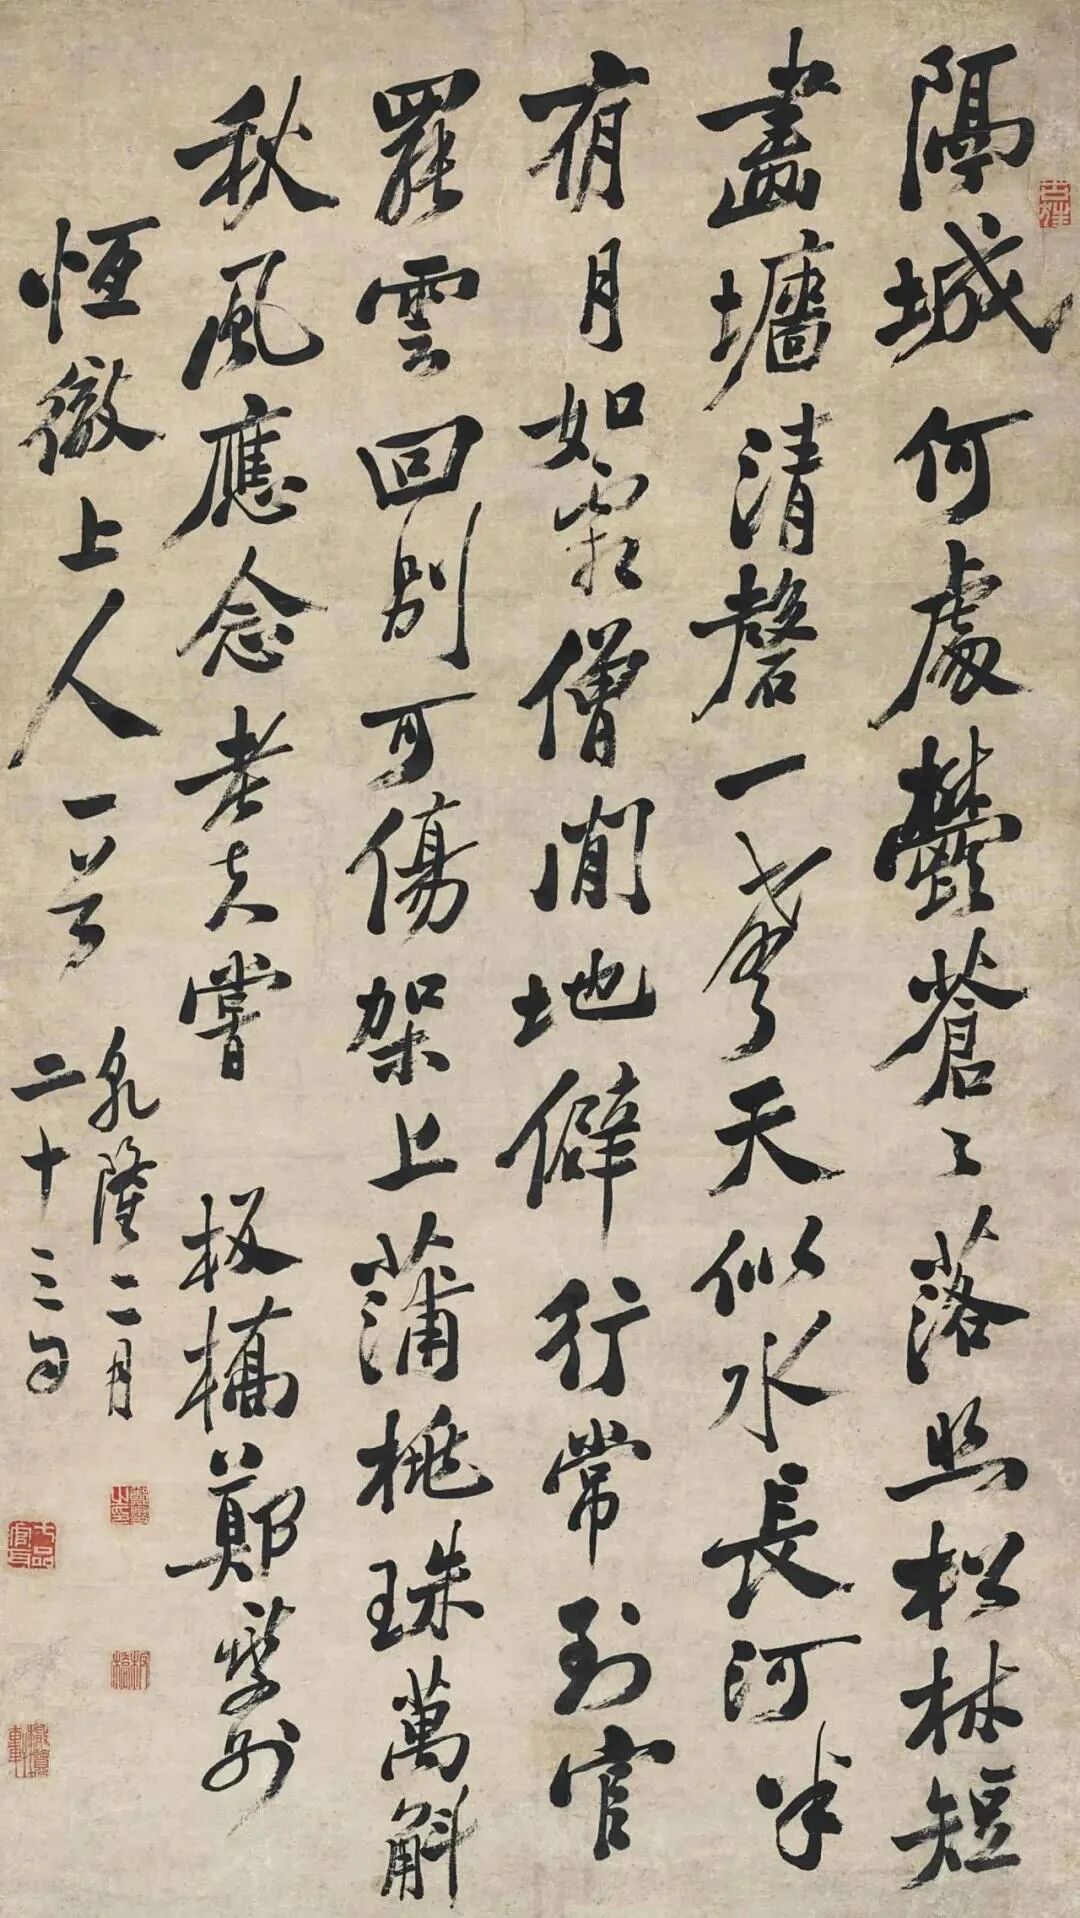 隔城何處鬱蒼〻落照松林短
畫墻清磬一聲天似水長河半
有月如霜僧閒地僻行常到官
罷雲回別可傷架上蒲桃珠萬斛
秋風應念老夫嘗 板橋鄭燮別
恒徹上人一笑 乾隆二月
二十三日
鄭燮之印
七品官耳
板橋
橄欖軒